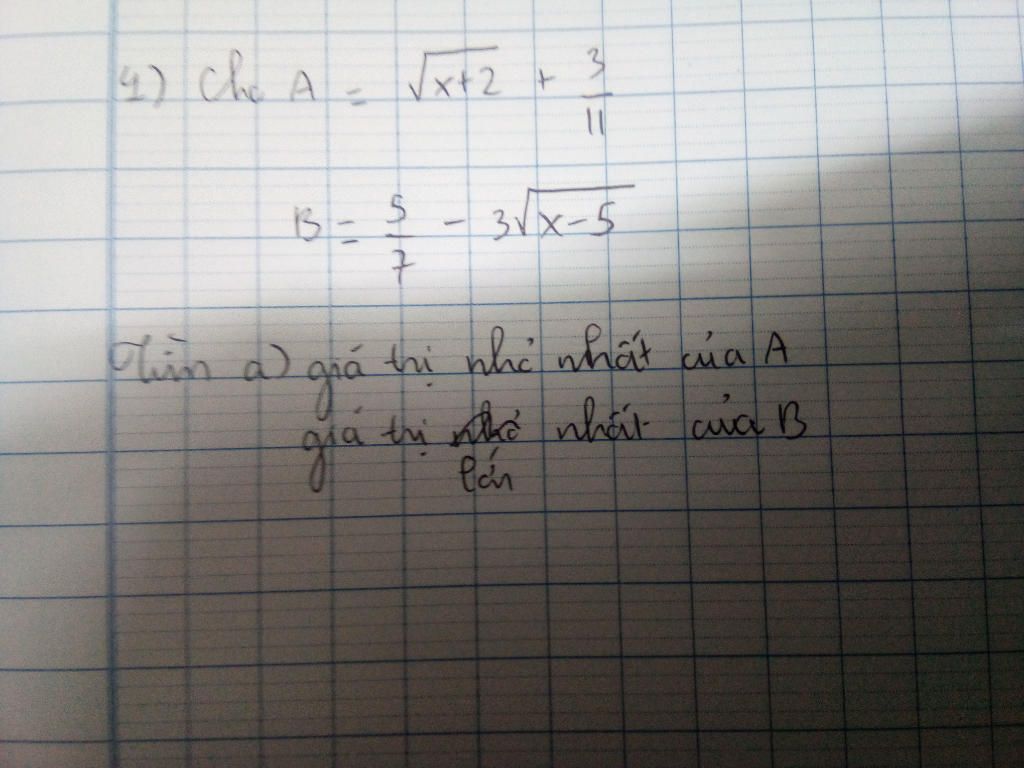 1) Cho A = √(x+2) + 3/11
B = 5/7 - 3√(x-5)
Tìm a) giá thị nhỏ nhất của A
giá thị nhỏ nhất của B
lớn